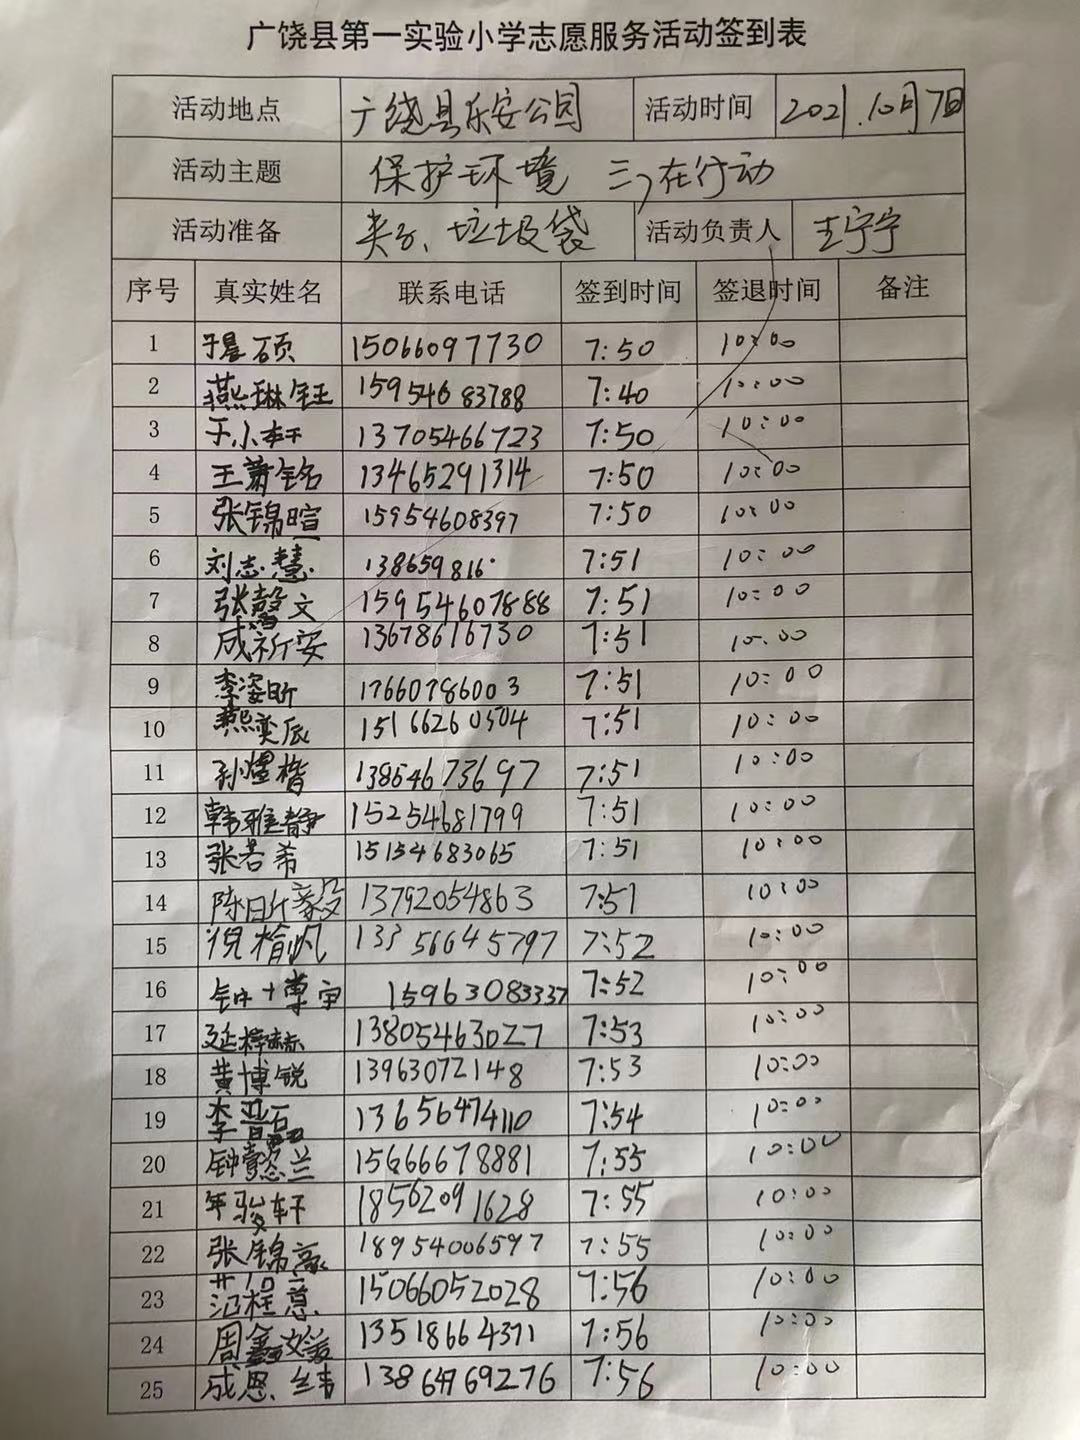 广饶县第一实验小学志愿服务活动签到表
活动地点 广饶县乐安公园 活动时间 2021.10月7日
活动主题 保护环境 在行动
活动准备 夹子、垃圾袋 活动负责人 王宁宁
序号 真实姓名 联系电话 签到时间 签退时间 备注
1 硕 15066097730 7:50 10:00
2 燕琳钰 15954683788 7:40 10:00
3 于小轩 13705466723 7:50 10:00
4 王萧铭 13465291314 7:50 10:00
5 张锦暄 15954608397 7:50 10:00
6 刘志慧 138659816 7:51 10:00
7 张馨文 15954607888 7:51 10:00
8 成祈安 13678616730 7:51 10:00
9 李姿昕 17660786003 7:51 10:00
10 燕奕辰 15166260504 7:51 10:00
11 孙煜楷 13854673697 7:51 10:00
12 韩雅静 15254681799 7:51 10:00
13 张若希 15154683065 7:51 10:00
14 陈昕毅 13792054863 7:51 10:00
15 倪榆帆 13356645797 7:52 10:00
16 15963083337 7:52 10:00
17 延梓赫 13805463027 7:53 10:00
18 黄博锐 13963072148 7:53 10:00
19 李晋 13656474110 7:54 10:00
20 钟懿兰 15666678881 7:55 10:00
21 年骏轩 18562091628 7:55 10:00
22 张锦豪 18954006597 7:55 10:00
23 15066052028 7:56 10:00
24 周鑫 13518664371 7:56 10:00
25 成恩纬 13864769276 7:56 10:00